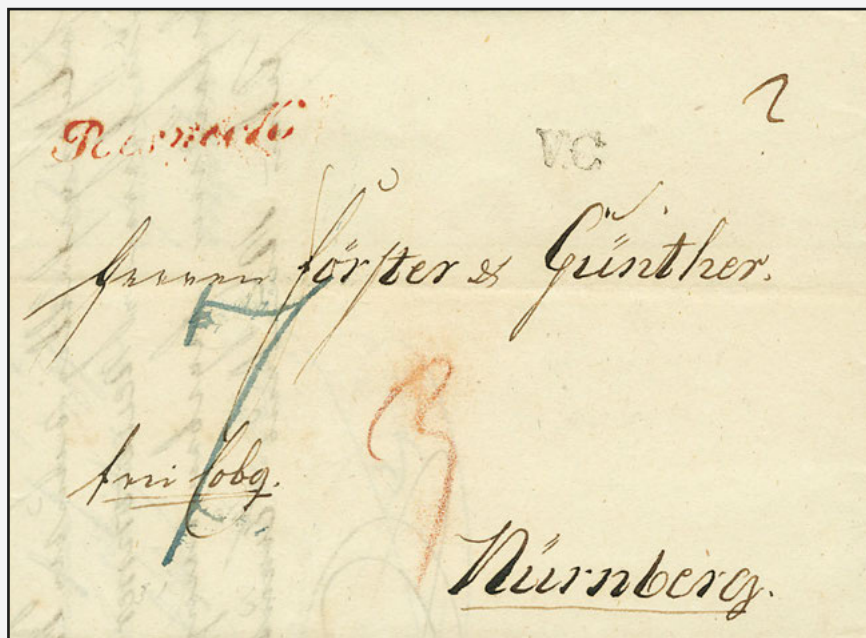 2
V.C
Herren Förster & Günther.
7
3
frei Cobg.
Nürnberg.